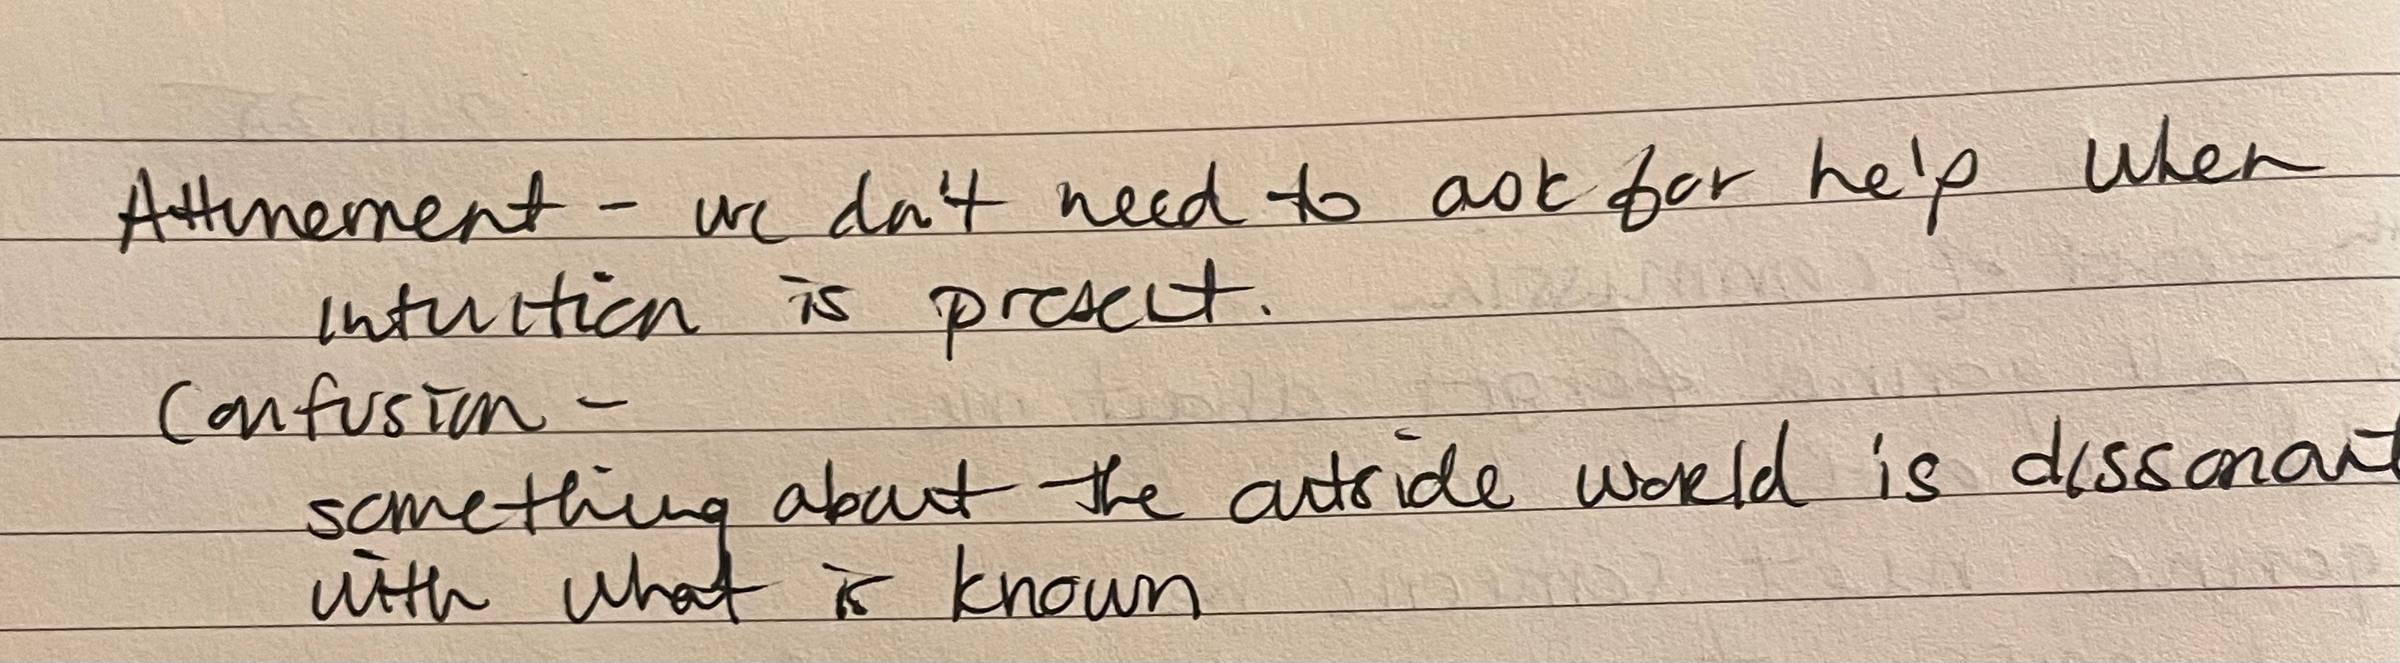 Attunement - we don't need to ask for help when
intuition is present.
Confusion -
something about the outside world is dissonant
with what is known